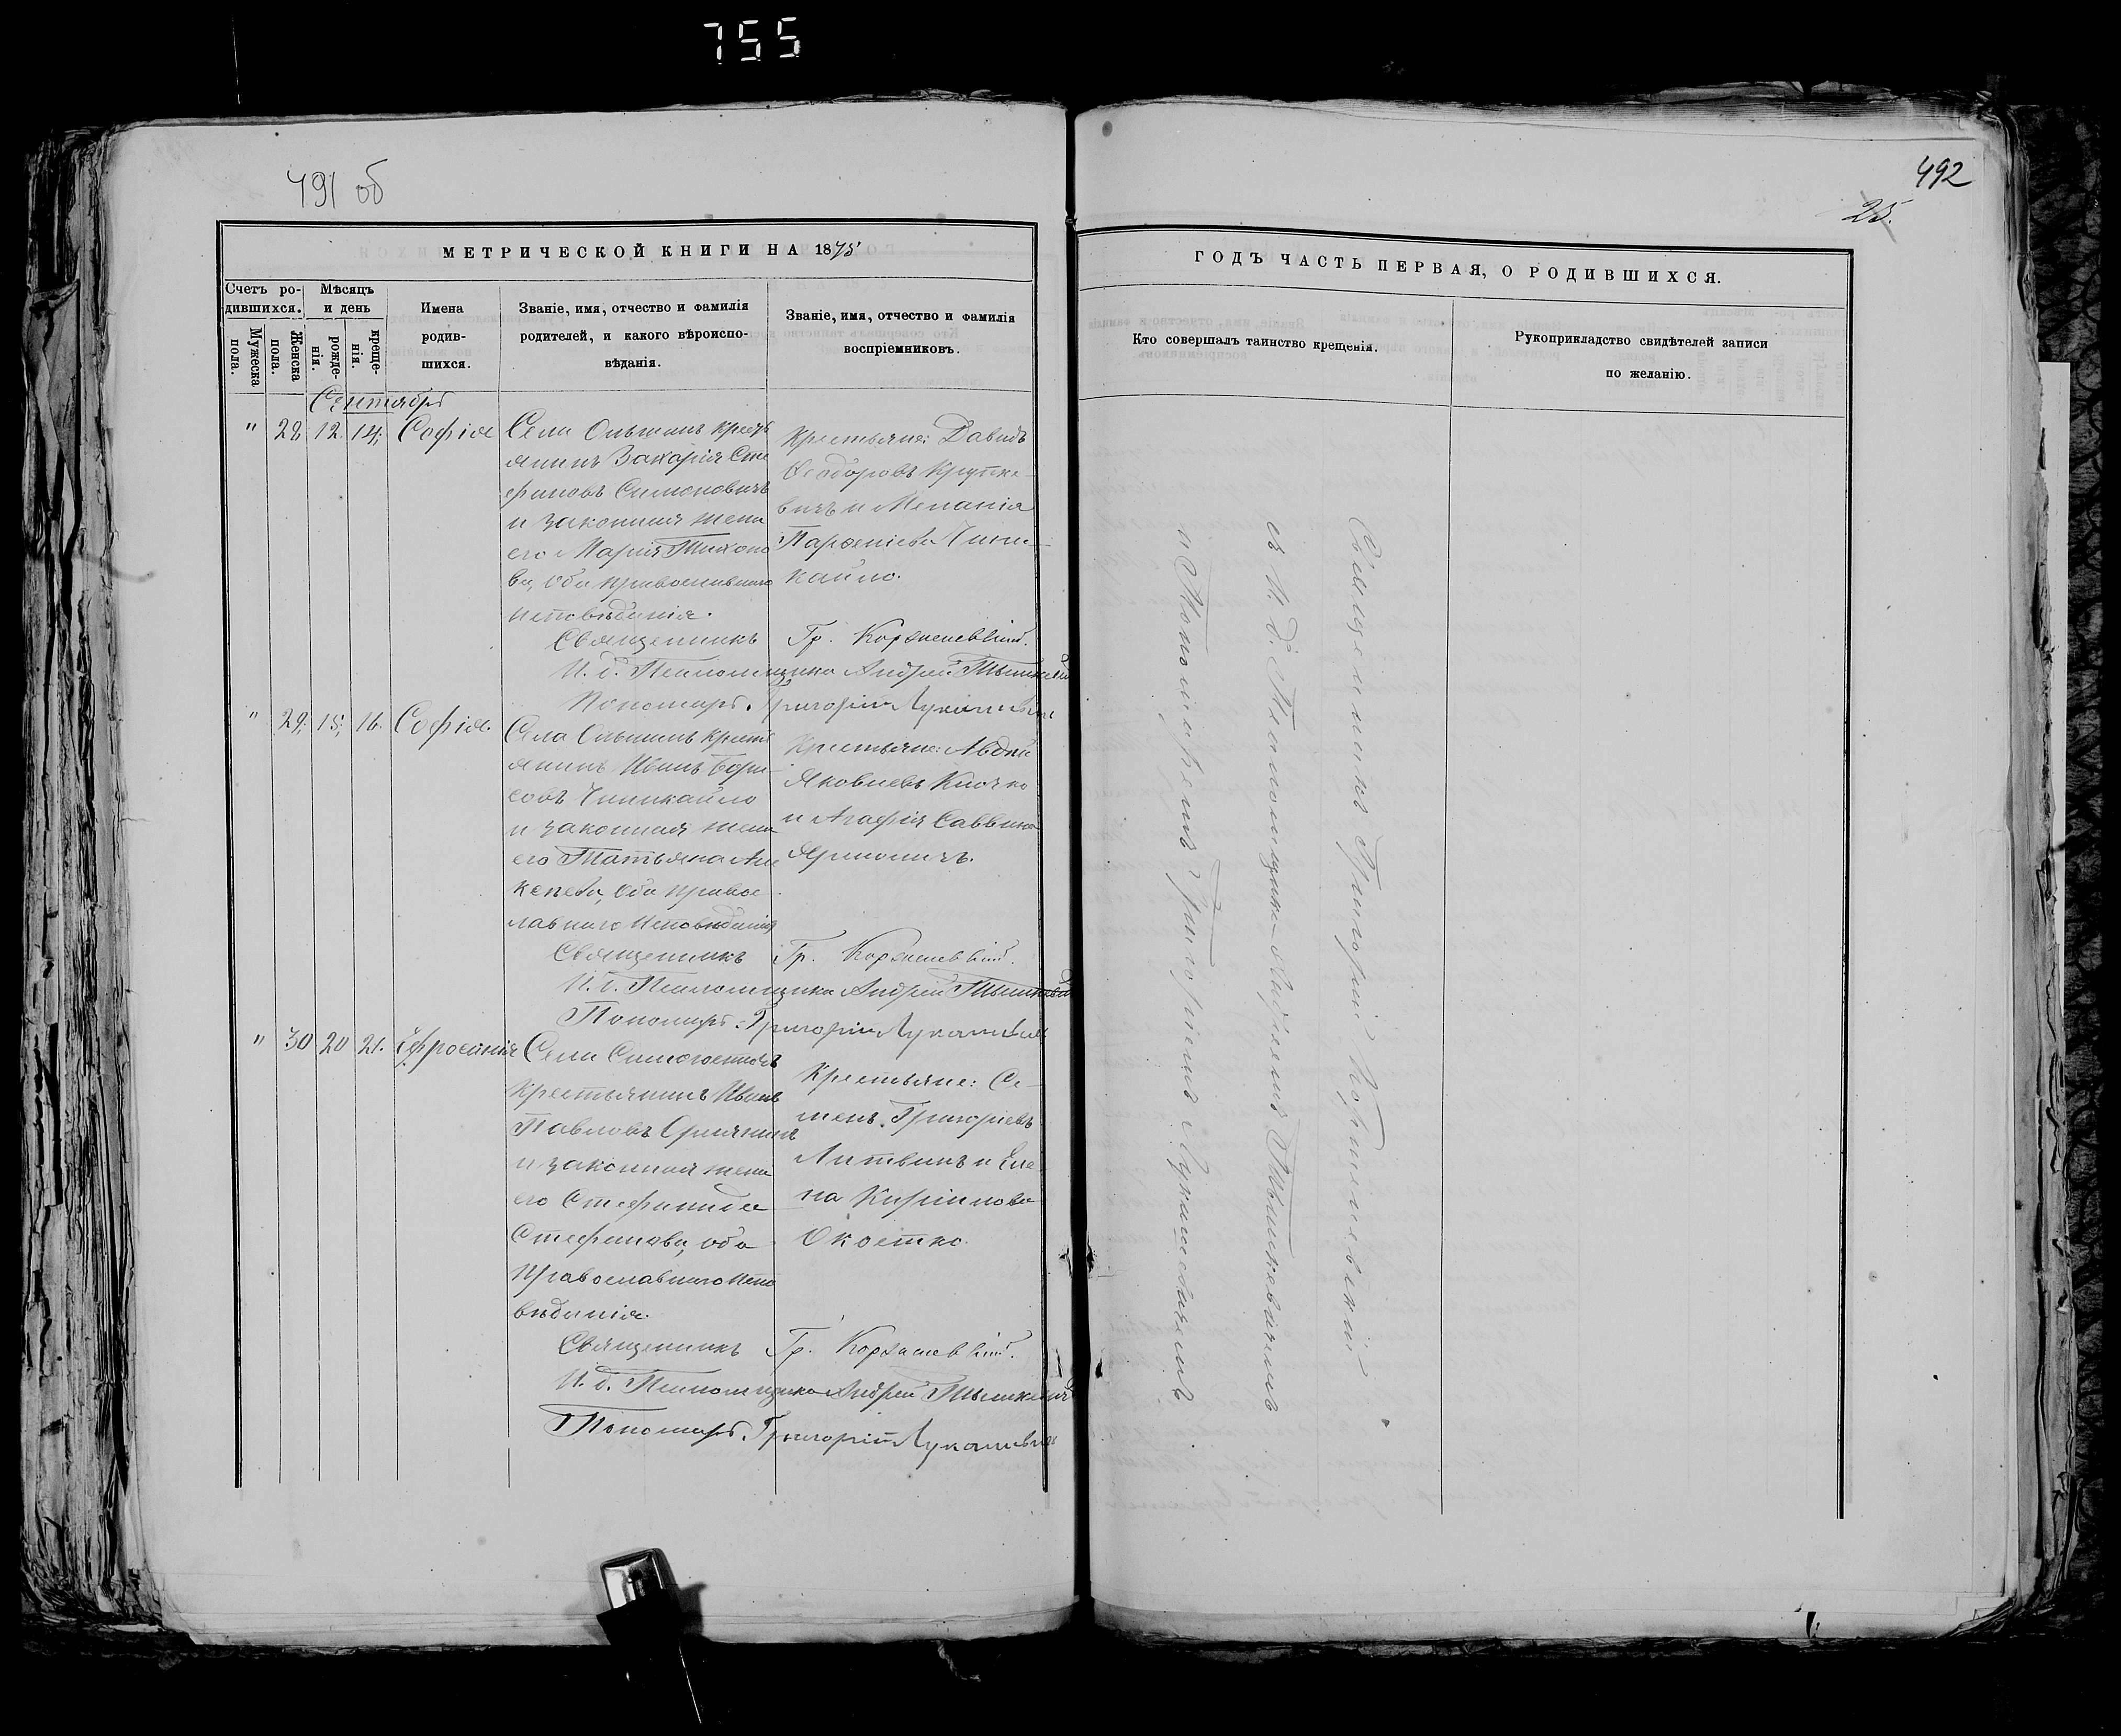 755
491 об
492
25.
МЕТРИЧЕСКОЙ КНИГИ НА 1875
ГОДЪ ЧАСТЬ ПЕРВАЯ, О РОДИВШИХСЯ.
Счетъ ро-
дившихся.
Мужеска
пола.
Женска
пола.
Мѣсяцъ
и день
рожде-
нія.
креще-
нія.
Имена
родив-
шихся.
Званіе, имя, отчество и фамилія
родителей, и какого вѣроиспо-
вѣданія.
Званіе, имя, отчество и фамилія
воспріемниковъ.
Кто совершалъ таинство крещенія.
Рукоприкладство свидѣтелей записи
по желанію.
Сентябрь
" 28, 12. 14, Софія
Села Ольшанъ кресть
янинъ Захарія Сте
фановъ Симоновичъ
и законная жена
его Марія Тихоно
ва, оба православнаго
исповѣданія.
Крестьяне: Давидъ
Ѳеодоровъ Крупке
вичъ и Меланія
Парѳеніева Чини
кайло.
Священникъ Гр. Корженевскій.
И. д. Псаломщика Андрей Тышкевич
Пономарь Григорій Лукашевич
" 29, 15, 16. Софія.
Села Ольшанъ кресть
янинъ Иванъ Бори
совъ Чиникайло
и законная жена
его Татьяна Аки
кева, оба право
славнаго исповѣданія
Крестьяне: Авдѣй
Яковлевъ Клочко
и Агафія Саввина
Яримичъ.
Священникъ Гр. Корженевскій.
И. д. Псаломщика Андрей Тышкевич
Пономарь Григорій Лукашевич
" 30 20 21. Ефросинія
Села
Крестьянинъ Иванъ
Павловъ
и законная жена
его Стефанида
Стефанова, оба
православнаго испо
вѣданія.
Крестьяне: Се-
менъ Григоріевъ
Литвинъ и Еле
на Кирилова
Окостко.
Священникъ Гр. Корженевскій.
И. д. Псаломщика Андрей Тышкевич
Пономарь Григорій Лукашевич
Священникъ Григорій Корженевскій
съ И. д. Псаломщика Андреемъ Тышкевичемъ
и Пономаремъ Григоріемъ Лукашевичемъ